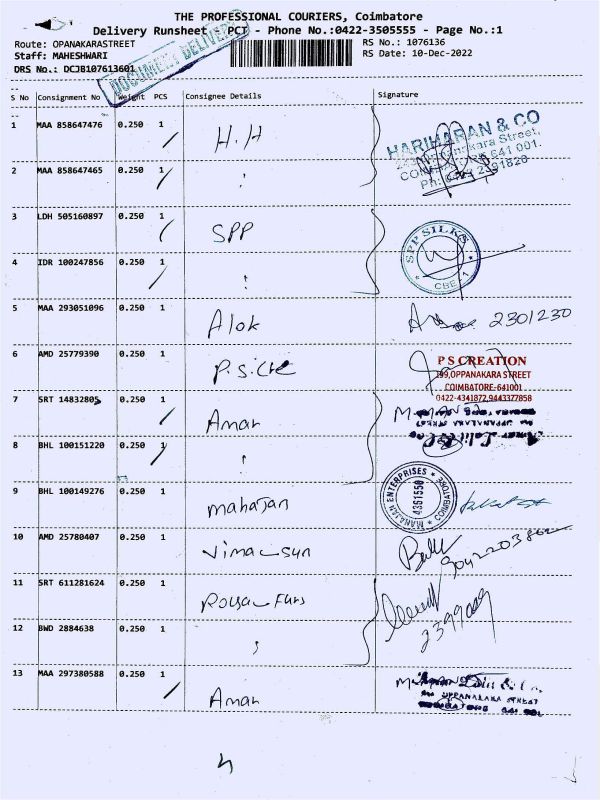 THE PROFESSIONAL COURIERS, Coimbatore
Delivery Runsheet - PCT - Phone No.:0422-3505555 - Page No.:1
Route: OPANAKARASTREET
RS No.: 1076136
Staff: MAHESHWARI
RS Date: 10-Dec-2022
DRS No.: DCJB107613601
DOCUMENT DELIVERY
S No Consignment No Weight PCS Consignee Details Signature
1 MAA 858647476 0.250 1 H.H
HARIHARAN & CO
2 MAA 858647465 0.250 1 "
3 LDH 505160897 0.250 1 SPP
SPP SILKS
CBE 1
4 IDR 100247856 0.250 1 "
5 MAA 293051096 0.250 1 Alok 2301230
6 AMD 25779390 0.250 1
P S CREATION
199,OPPANAKARA STREET
COIMBATORE-641001
0422-4341872,9443377858
7 SRT 14832805 0.250 1 Aman
8 BHL 100151220 0.250 1 "
9 BHL 100149276 0.250 1 mahajan
MAHAJAN ENTERPRISES
4351550
COIMBATORE
10 AMD 25780407 0.250 1 Vimal sun
11 SRT 611281624 0.250 1 Royal Furs
2399009
12 BWD 2884638 0.250 1 "
13 MAA 297380588 0.250 1 Aman